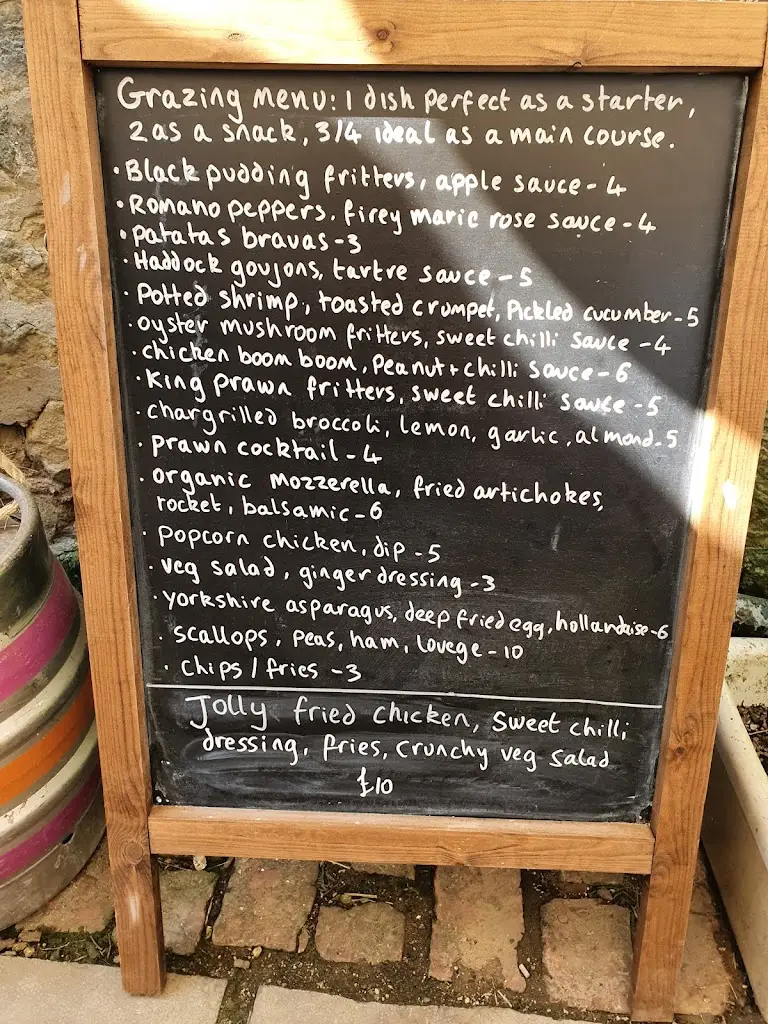 Grazing menu: 1 dish perfect as a starter,
2 as a snack, 3/4 ideal as a main course.
• Black pudding fritters, apple sauce - 4
• Romano peppers, firey marie rose sauce - 4
• patatas bravas - 3
• Haddock goujons, tartre sauce - 5
• Potted shrimp, toasted crumpet, Pickled cucumber - 5
• oyster mushroom fritters, sweet chilli sauce - 4
• chicken boom boom, Peanut + chilli sauce - 6
• King prawn fritters, sweet chilli sauce - 5
• chargrilled broccoli, lemon, garlic, almond - 5
• prawn cocktail - 4
• organic mozzerella, fried artichokes,
rocket, balsamic - 6
• popcorn chicken, dip - 5
• veg salad, ginger dressing - 3
• yorkshire asparagus, deep fried egg, hollandaise - 6
• scallops, peas, ham, lovege - 10
• chips / fries - 3
Jolly fried chicken, sweet chilli
dressing, fries, crunchy veg salad
£10